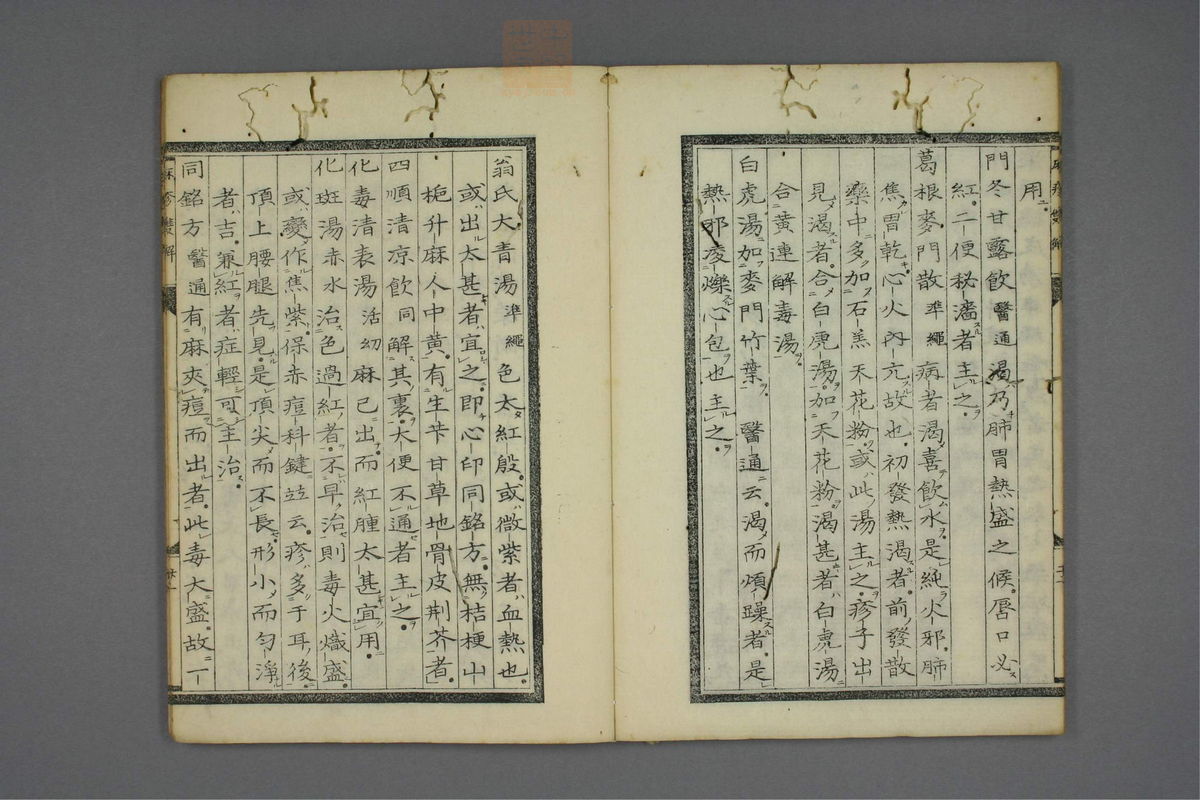 用
門冬甘露飲醫通渴乃肺胃熱盛之候唇口必
紅二便秘濇者主之
葛根麥門散準繩病者渴喜飲水是純火邪肺
焦胃乾心火內亢故也初發熱渴者前發散
藥中多加石羔天花粉或此湯主之疹子出
見渴者合白虎湯加天花粉渴甚者白虎湯
合黃連解毒湯
白虎湯加麥門竹葉 醫通云渴而煩躁者是
熱邪凌爍心包也主之
翁氏大青湯準繩色太紅殷或微紫者血熱也
或出太甚者宜之即心印同銘方無桔梗山
梔升麻人中黃有生芐甘草地骨皮荆芥者
四順清凉飲同解其裏大便不通者主之
化毒清表湯活幼麻已出而紅腫太甚宜用
化斑湯赤水治色過紅者不早治則毒火熾盛
或變作焦紫保赤痘科鍵竝云疹多于耳後
頂上腰腿先見是頂尖而不長形小而匀淨
者吉兼紅者症輕可主治
同銘方醫通有麻夾痘而出者此毒大盛故一